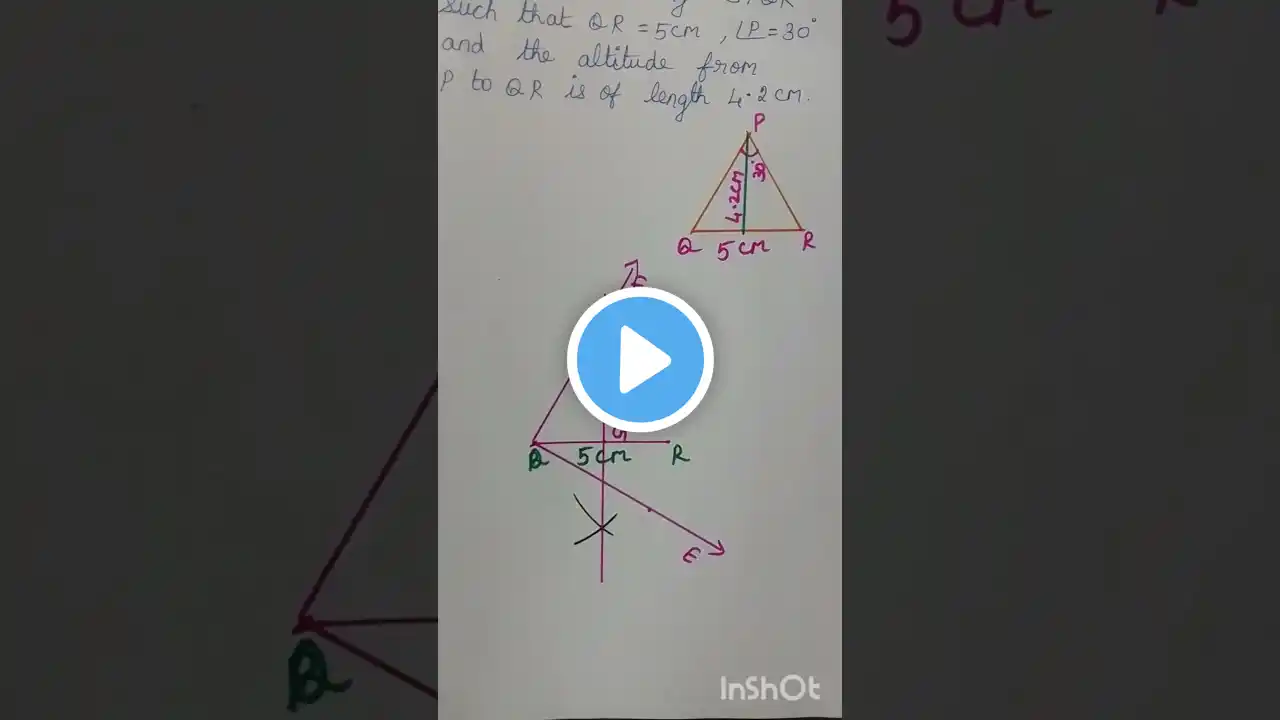 such that QR = 5cm, ∠P = 30°
and the altitude from
P to QR is of length 4.2cm.
P
30°
4.2cm
Q 5cm R
Q 5cm R
G
E
InShOt
5 cm
Q